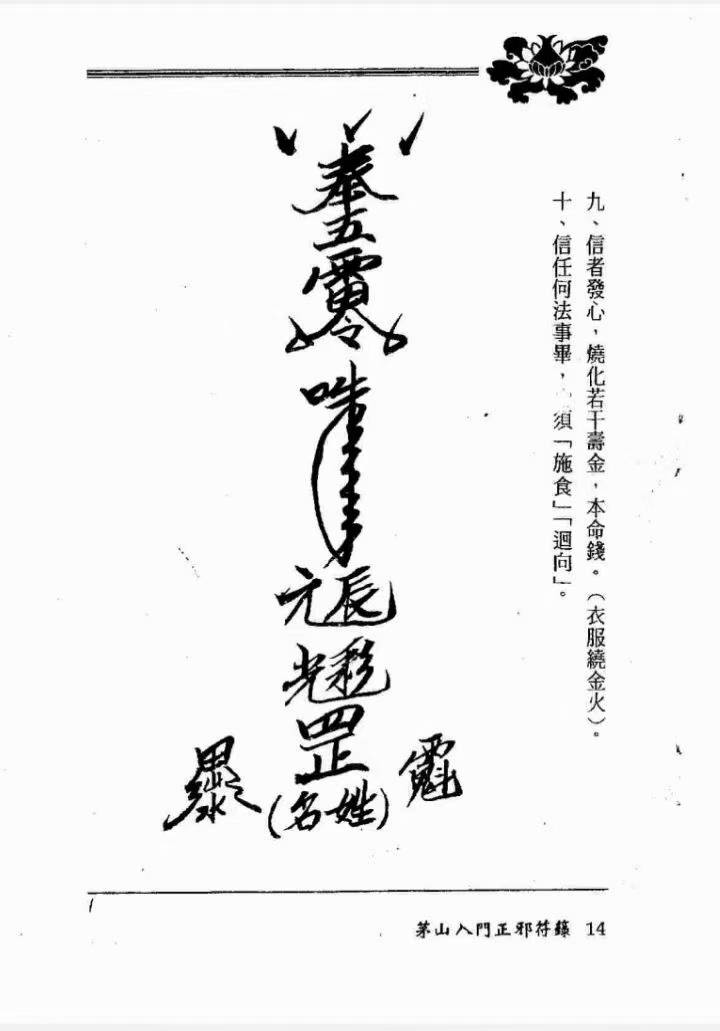 九、信者發心，燒化若干壽金，本命錢。（衣服繞金火）。
十、信任何法事畢，須「施食」「迴向」。
奉
五
雷令
元辰
光彩
罡
(名姓)
茅山入門正邪符籙 14